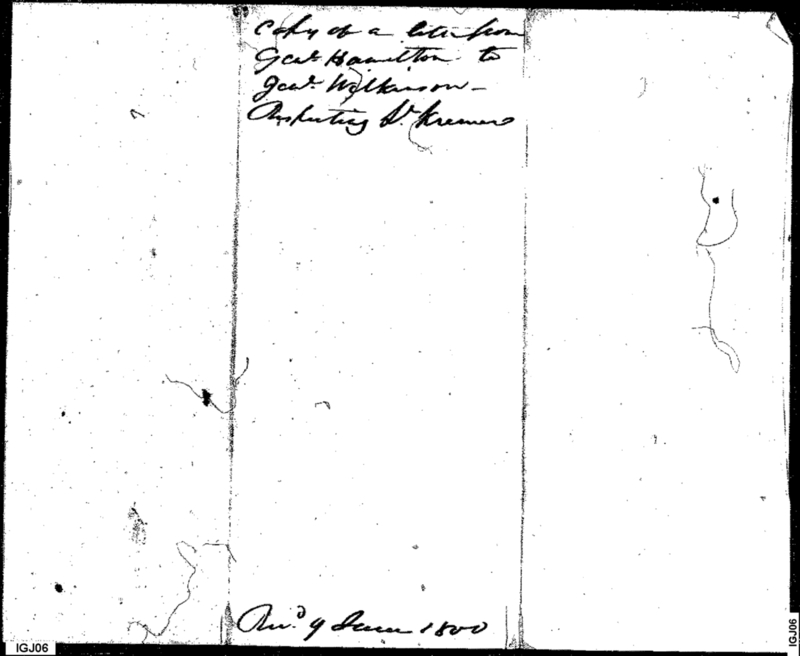 Copy of a letter from
Genl. Hamilton to
Genl. Wilkinson —
Respecting Dr. Kremer
Recd. 9 June 1800
IGJ06
IGJ06